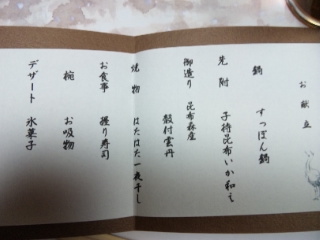 お献立
鍋 すっぽん鍋
先附 子持昆布いか和え
御造り 昆布森産
殻付雲丹
焼物 はたはた一夜干し
お食事 握り寿司
椀 お吸物
デザート 氷菓子